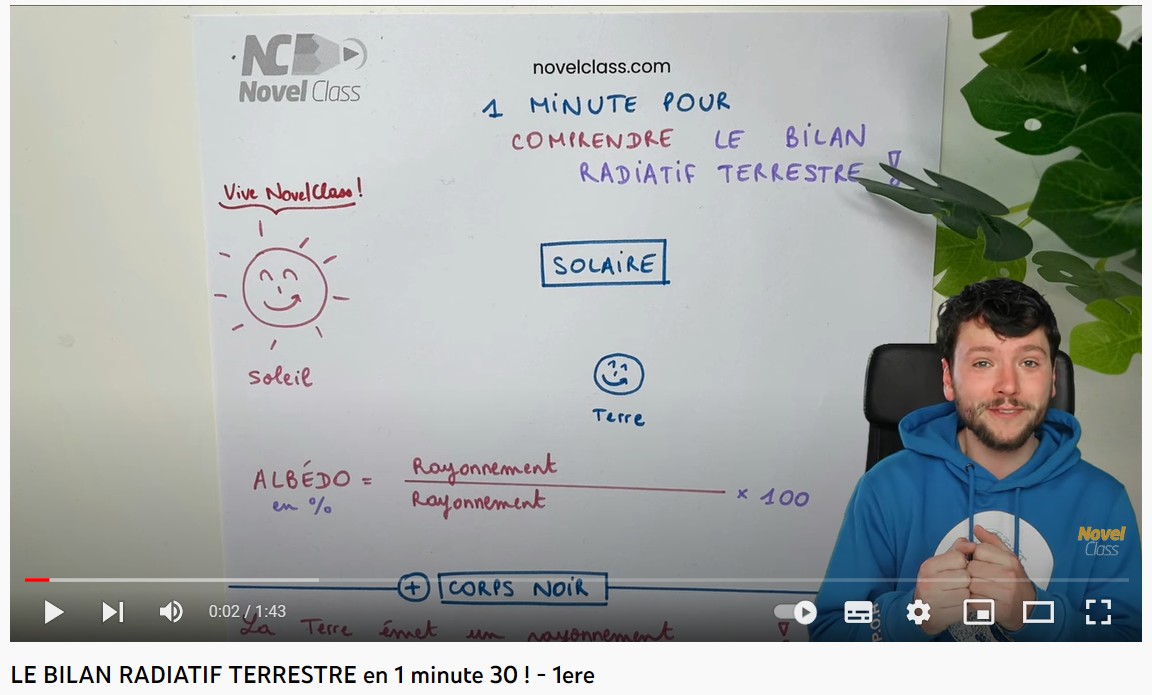 NC
Novel Class
novelclass.com
1 MINUTE POUR
COMPRENDRE LE BILAN
RADIATIF TERRESTRE !
Vive NovelClass !
SOLAIRE
soleil
Terre
ALBÉDO = Rayonnement
Rayonnement × 100
en %
Novel
Class
+ CORPS NOIR
0:02 / 1:43
La Terre émet un rayonnement !
LE BILAN RADIATIF TERRESTRE en 1 minute 30 ! - 1ere